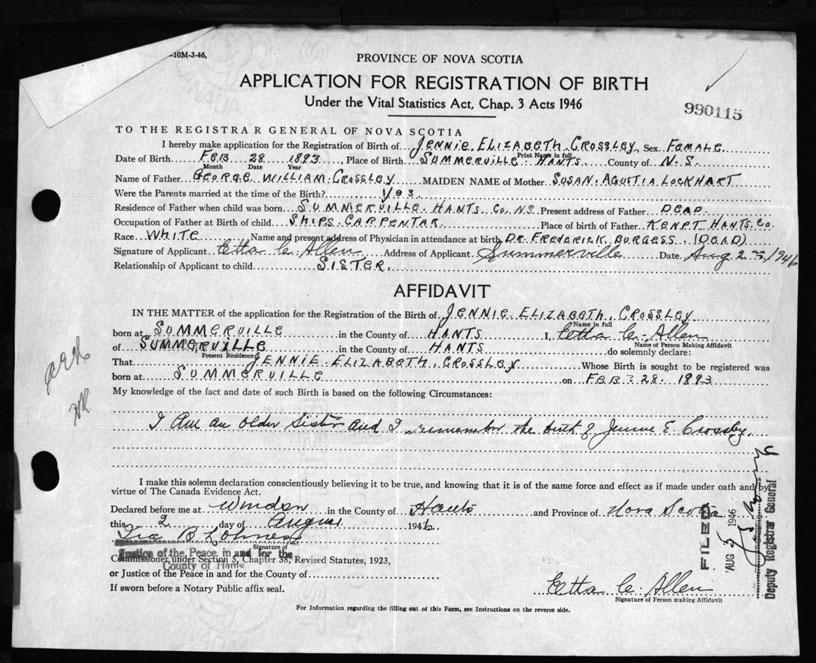 -10M-3-46,
PROVINCE OF NOVA SCOTIA
APPLICATION FOR REGISTRATION OF BIRTH
Under the Vital Statistics Act, Chap. 3 Acts 1946
990115
TO THE REGISTRAR GENERAL OF NOVA SCOTIA
I hereby make application for the Registration of Birth of JENNIE ELIZABETH CROSSLEY, Sex FEMALE
Print Name in full
Date of Birth FEB 28 1893, Place of Birth SUMMERVILLE HANTS County of N.S.
Month Date Year
Name of Father GEORGE WILLIAM CROSSLEY MAIDEN NAME of Mother SUSAN AGUSTIA LOCKHART
Were the Parents married at the time of the Birth? yes
Residence of Father when child was born SUMMERVILLE HANTS CO. N.S. Present address of Father DEAD
Occupation of Father at Birth of child SHIPS CARPENTAR Place of birth of Father KEMPT HANTS CO.
Race WHITE Name and present address of Physician in attendance at birth DR. FREDERICK BURGESS (DEAD)
Signature of Applicant Etta C. Allen Address of Applicant Summerville Date Aug 2 1946
Relationship of Applicant to child SISTER.
AFFIDAVIT
IN THE MATTER of the application for the Registration of Birth of JENNIE ELIZABETH CROSSLEY
Name in full
born at SUMMERVILLE in the County of HANTS I, Etta C. Allen
Name of Person Making Affidavit
of SUMMERVILLE in the County of HANTS do solemnly declare:
Present Residence
That JENNIE ELIZABETH CROSSLEY Whose Birth is sought to be registered was
born at SUMMERVILLE on FEB 28 1893
My knowledge of the fact and date of such Birth is based on the following Circumstances:
I Am an older Sister and I remember the birth of Jennie E Crossley.
I make this solemn declaration conscientiously believing it to be true, and knowing that it is of the same force and effect as if made under oath and by
virtue of The Canada Evidence Act.
Declared before me at Windsor in the County of Hants and Province of Nova Scotia
this 2 day of August 1946
Signature of
Justice of the Peace in and for the
County of Hants
Commissioner under Section 5, Chapter 38, Revised Statutes, 1923,
or Justice of the Peace in and for the County of
If sworn before a Notary Public affix seal.
Etta C. Allen
Signature of Person making Affidavit
FILED
AUG 3 1946
Deputy Registrar General
For Information regarding the filling out of this Form, see Instructions on the reverse side.